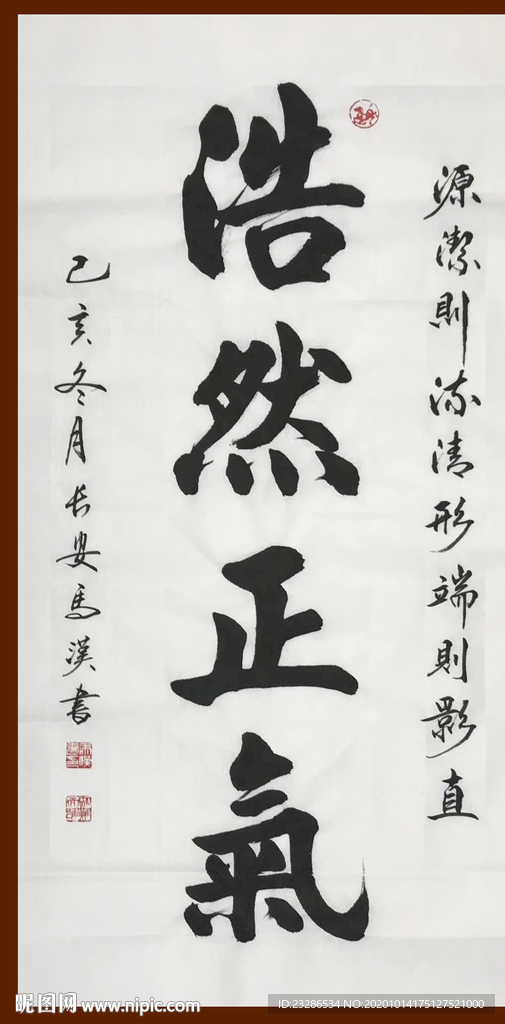 源潔則流清形端則影直
浩然正氣
己亥冬月长安馬漢书
昵图网 www.nipic.com
ID:23286534 NO:20201014175127521000